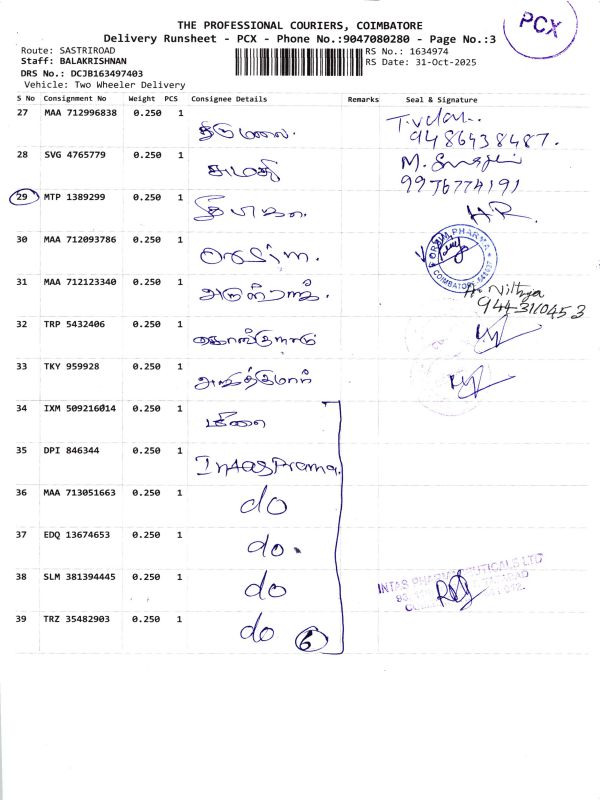 PCX
THE PROFESSIONAL COURIERS, COIMBATORE
Delivery Runsheet - PCX - Phone No.:9047080280 - Page No.:3
Route: SASTRIROAD
RS No.: 1634974
Staff: BALAKRISHNAN
RS Date: 31-Oct-2025
DRS No.: DCJB163497403
Vehicle: Two Wheeler Delivery
S No Consignment No Weight PCS Consignee Details Remarks Seal & Signature
27 MAA 712996838 0.250 1 திருமலை.
9486438487.
28 SVG 4765779 0.250 1 சுமதி
M.
9976774191
29 MTP 1389299 0.250 1
HR.
30 MAA 712093786 0.250 1
PHARMA
COIMBATORE
31 MAA 712123340 0.250 1
A. Nithya
9443110453
32 TRP 5432406 0.250 1
33 TKY 959928 0.250 1
34 IXM 509216014 0.250 1
35 DPI 846344 0.250 1 Intas Prama.
36 MAA 713051663 0.250 1 do
37 EDQ 13674653 0.250 1 do.
38 SLM 381394445 0.250 1 do
INTAS PHARMACEUTICALS LTD
39 TRZ 35482903 0.250 1 do 6